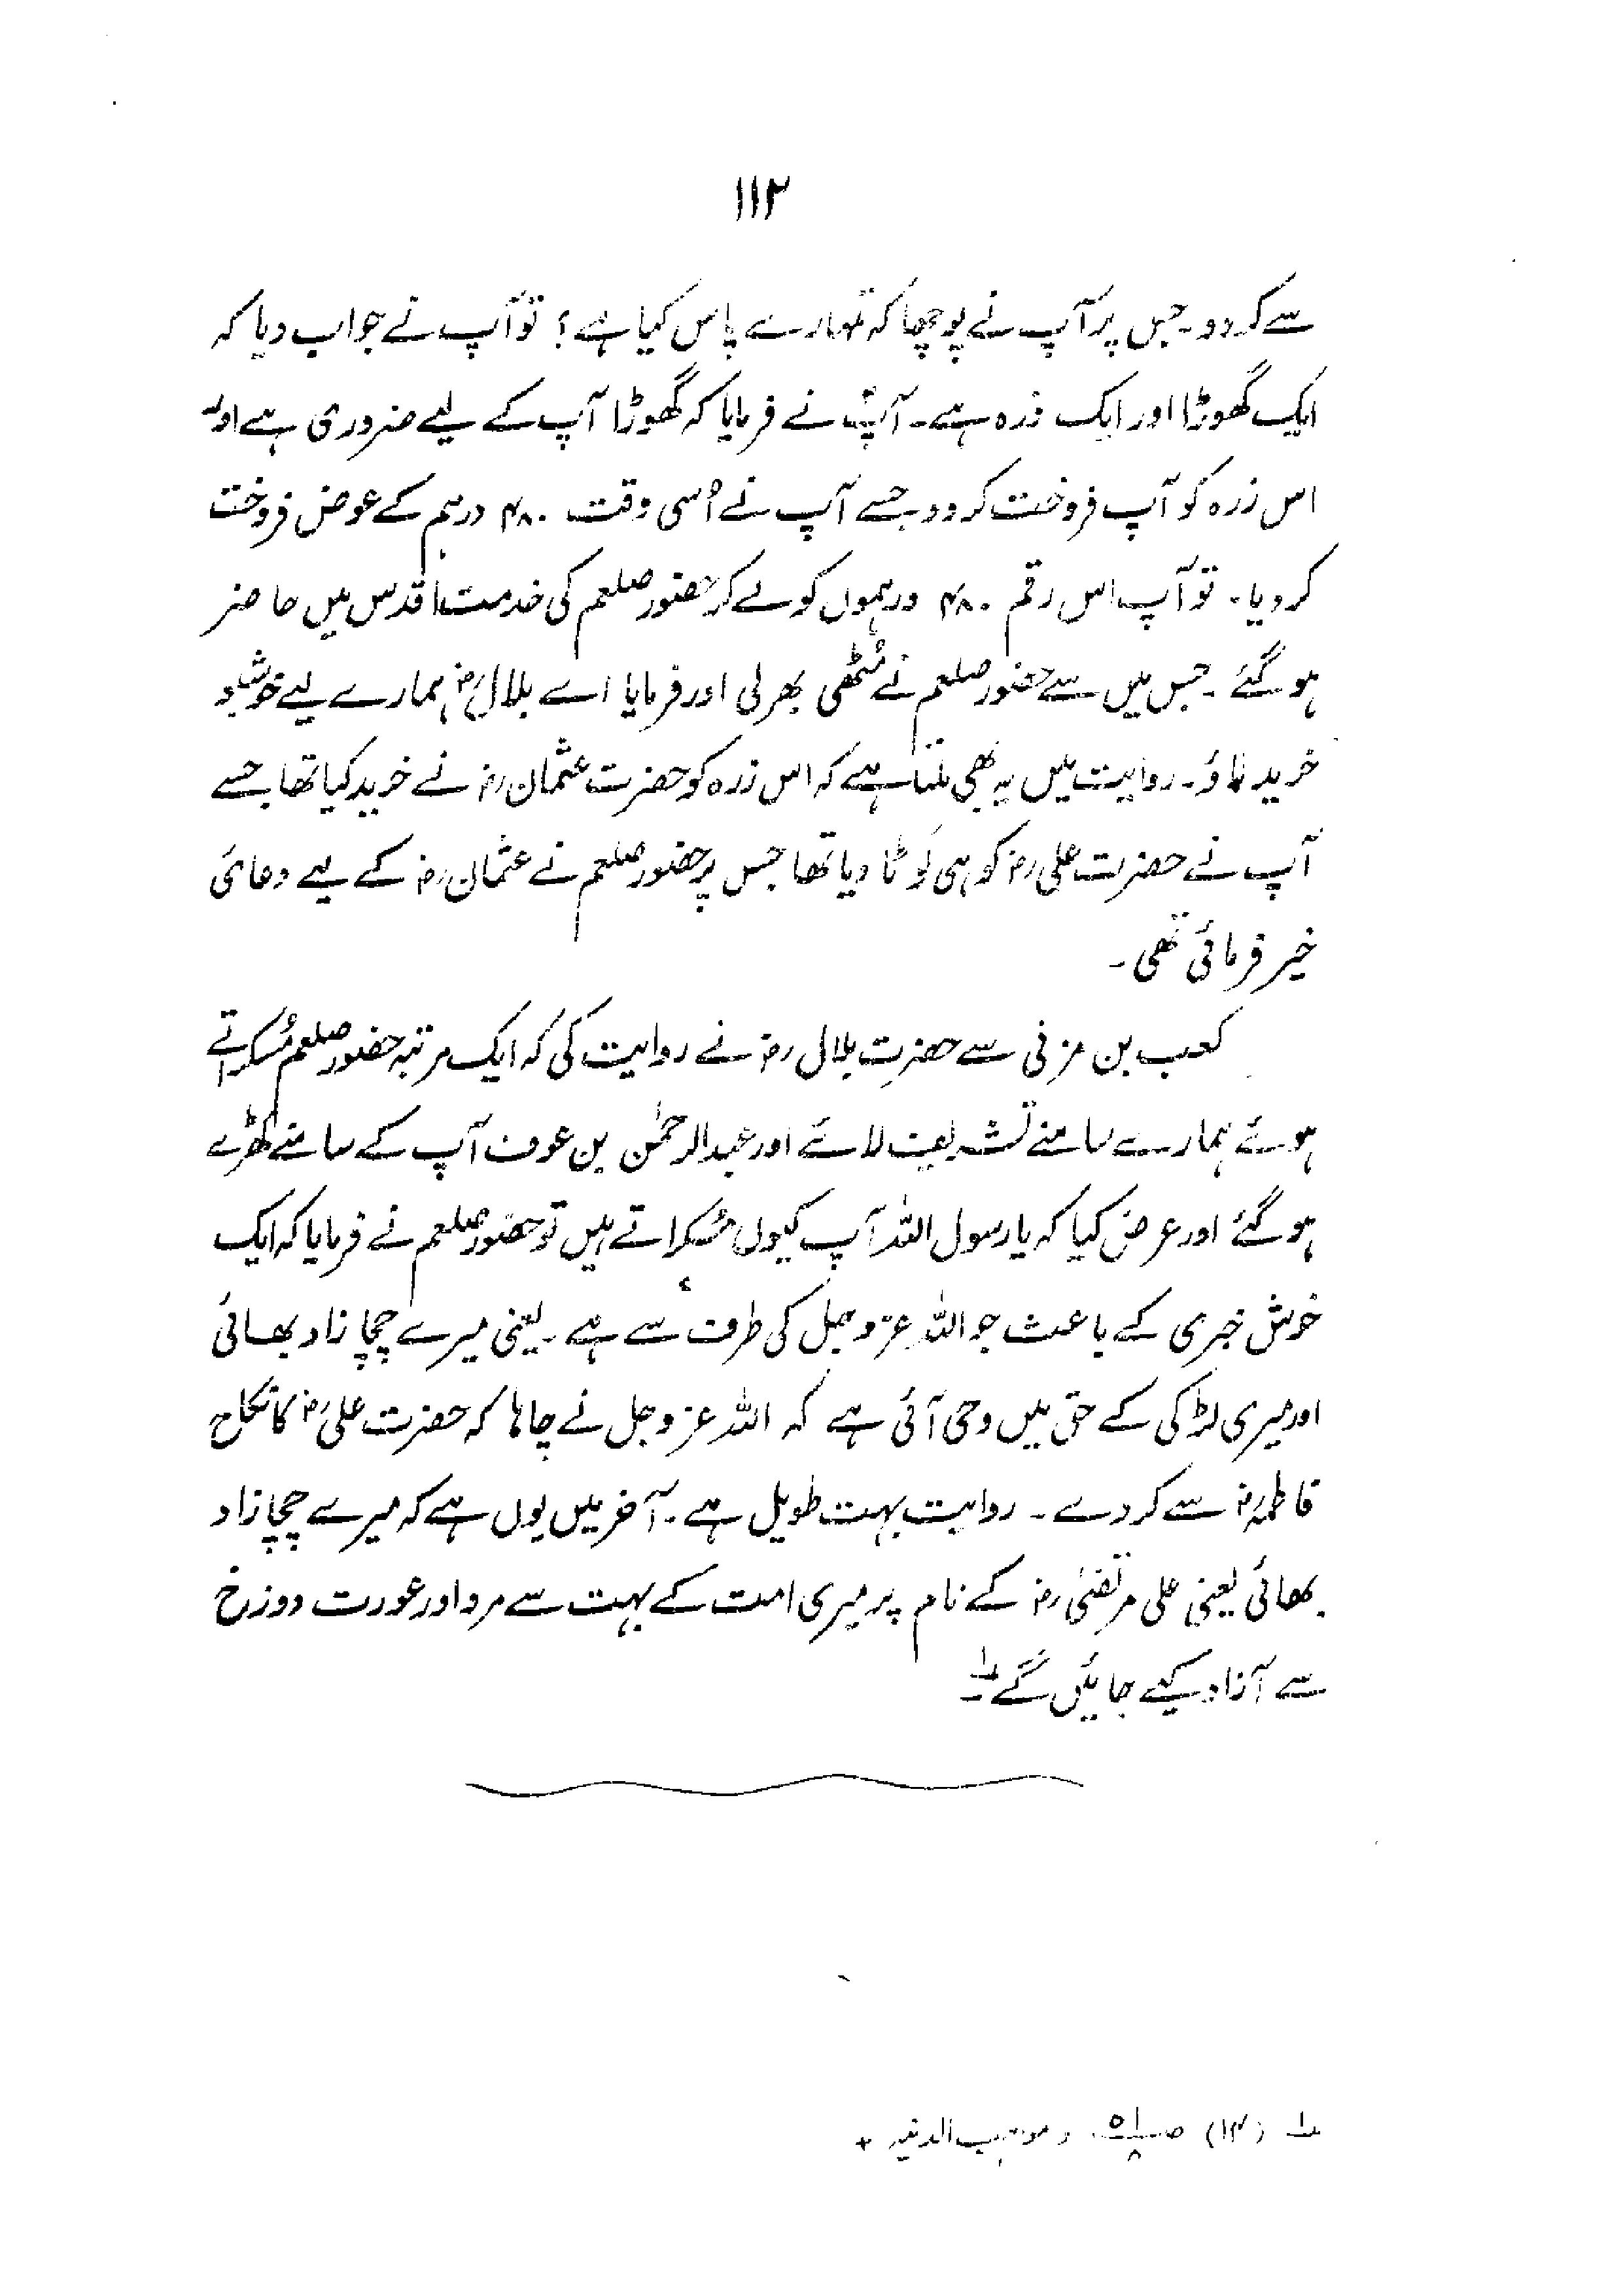 ۱۱۲
سے کر دو۔ جس پر آپ نے پوچھا کہ تمہارے پاس کیا ہے؟ تو آپ نے جواب دیا کہ
ایک گھوڑا اور ایک زرہ ہے۔ آپؐ نے فرمایا کہ گھوڑا آپ کے لیے ضروری ہے اور
اس زرہ کو آپ فروخت کردو جسے آپ نے اُسی وقت ۴۸۰ درہم کے عوض فروخت
کر دیا۔ تو آپ اس رقم ۴۸۰ درہموں کو لے کر حضور صلعم کی خدمت اقدس میں حاضر
ہو گئے۔ جس میں سے حضور صلعم نے مُٹھی بھر لی اور فرمایا اے بلالؓ ہمارے لیے خوشبو
خرید لاؤ۔ روایت میں یہ بھی ملتا ہے کہ اس زرہ کو حضرت عثمانؓ نے خرید کیا تھا جسے
آپ نے حضرت علیؓ کو ہی لَوٹا دیا تھا جس پر حضور صلعم نے عثمانؓ کے لیے دعائ
خیر فرمائی تھی۔
کعب بن مزنی سے حضرتِ بلالؓ نے روایت کی کہ ایک مرتبہ حضور صلعم مُسکراتے
ہوئے ہمارے سامنے تشریف لائے اور عبدالرحمٰن بن عوف آپ کے سامنے کھڑے
ہو گئے اور عرض کیا کہ یا رسول اللہ آپ کیوں مُسکراتے ہیں تو حضور صلعم نے فرمایا کہ ایک
خوش خبری کے باعث جو اللہ عز و جل کی طرف سے ہے۔ یعنی میرے چچا زاد بھائی
اور میری لڑکی کے حق میں وحی آئی ہے کہ اللہ عز و جل نے چاہا کہ حضرت علیؓ کا نکاح
فاطمہؓ سے کر دے۔ روایت بہت طویل ہے۔ آخر میں یوں ہے کہ میرے چچا زاد
بھائی یعنی علی مرتضیٰؓ کے نام پر میری امت کے بہت سے مرد اور عورت دوزخ
سے آزاد کیے جائیں گے ۱؎
۱؎ (۱۴) و مواہب الدنیہ +